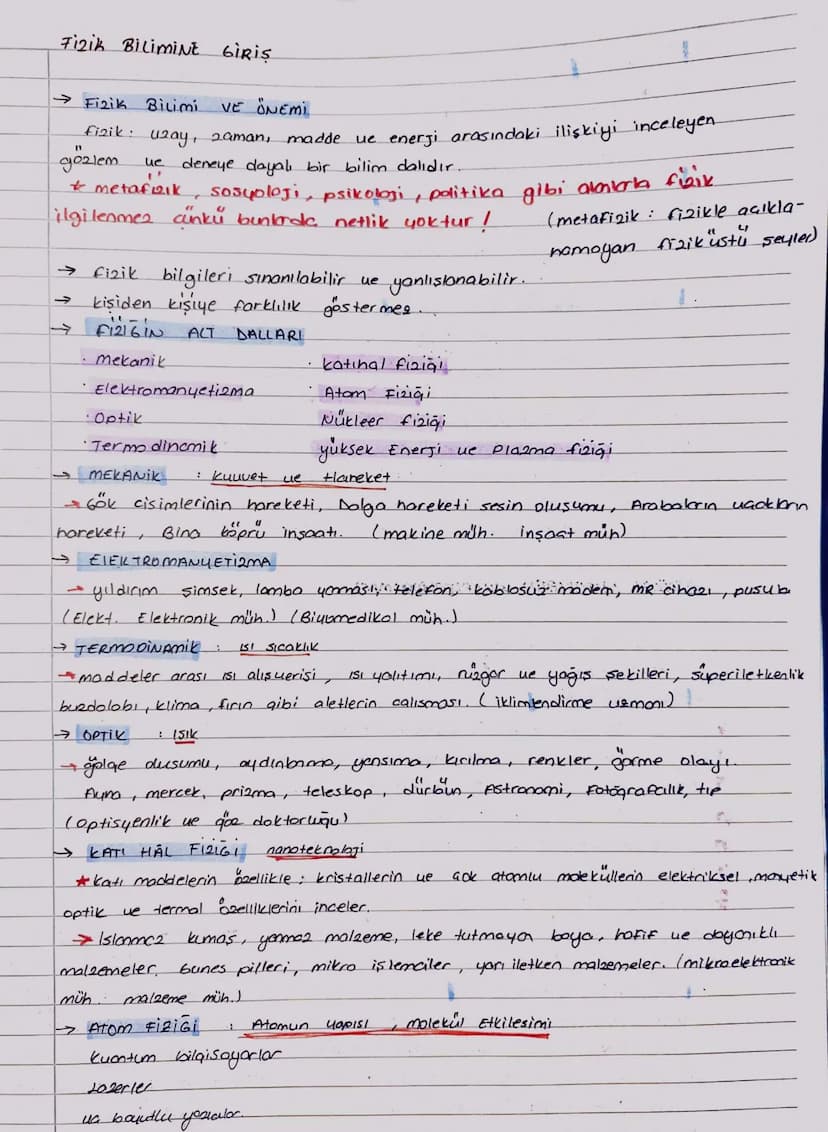 Fizik BİLİMİNE GİRİŞ
→ Fizik Bilimi VE ÖNEMİ
fizik: uzay, zaman, madde ve enerji arasındaki ilişkiyi inceleyen
gözlem ve deneye dayalı bir bilim dalıdır.
* metafizik, sosyoloji, psikoloji, politika gibi alanlarla fizik
ilgilenmez çünkü bunlarda netlik yoktur! (metafizik: fizikle açıkla-
namayan fizik üstü şeyler)
→ fizik bilgileri sınanılabilir ve yanlışlanabilir.
→ kişiden kişiye farklılık göstermez.
→ FİZİĞİN ALT DALLARI
· Mekanik · katıhal fiziği
· Elektromanyetizma · Atom Fiziği
· Optik Nükleer fiziği
· Termodinamik yüksek Enerji ve Plazma fiziği
→ MEKANİK : Kuvvet ve Hareket
→ Gök cisimlerinin hareketi, Dalga hareketi sesin oluşumu, Arabaların uçakların
hareketi, Bina köprü inşaatı. (makine müh. inşaat müh)
→ ElEKTROMANYETİZMA
→ yıldırım şimşek, lamba yanması, telefon, kablosuz modem, MR cihazı, pusula
(Elekt. Elektronik müh.) (Biyomedikal müh.)
→ TERMODİNAMİK : ısı sıcaklık
→ maddeler arası ısı alışverişi, ısı yalıtımı, rüzgar ve yağış şekilleri, süperiletkenlik
buzdolabı, klima, fırın gibi aletlerin calısması. (iklimlendirme uzmanı)
→ OPTİK : ışık
→ gölge olusumu, aydınlanma, yansıma, kırılma, renkler, görme olayı.
Ayna, mercek, prizma, teleskop, dürbün, Astronomi, Fotoğrafcılık, tıp
(optisyenlik ve göz doktorluğu)
→ KATI HÂL FİZİĞİ nanoteknoloji
★ katı maddelerin özellikle; kristallerin ve çok atomlu moleküllerin elektriksel, manyetik
optik ve termal özelliklerini inceler.
→ Islanmaz kumaş, yanmaz malzeme, leke tutmayan boya, hafif ve dayanıklı
malzemeler, Güneş pilleri, mikro işlemciler, yarı iletken malzemeler. (mikroelektronik
müh. malzeme müh.)
→ ATOM FİZİĞİ : Atomun yapısı, molekül Etkilesimi
kuantum bilgisayarlar
Lazerler
üç boyutlu yazıcılar.